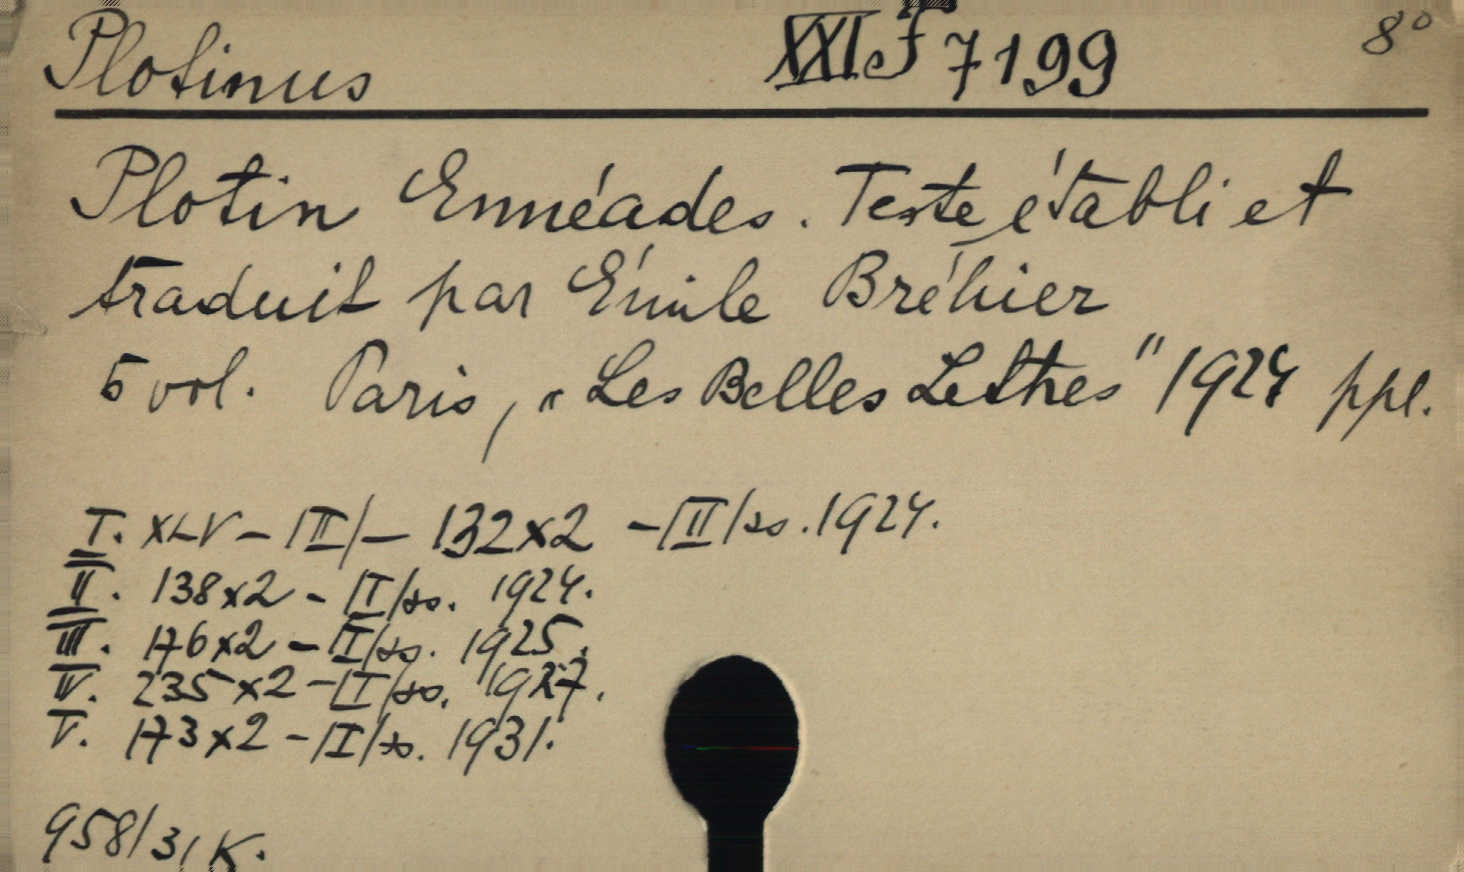 Plotinus XXI.F 7199 8°
Plotin Ennéades. Texte établi et
traduit par Émile Bréhier
5 vol. Paris, „Les Belles Lettres" 1924 ppl.
I. XLV – |II| – 132x2 – |II| ss. 1924.
II. 138x2 – |I| ss. 1924.
III. 176x2 – |I| ss. 1925.
IV. 235x2 – |I| ss. 1927.
V. 173x2 – |I| ss. 1931.
958/31 K.